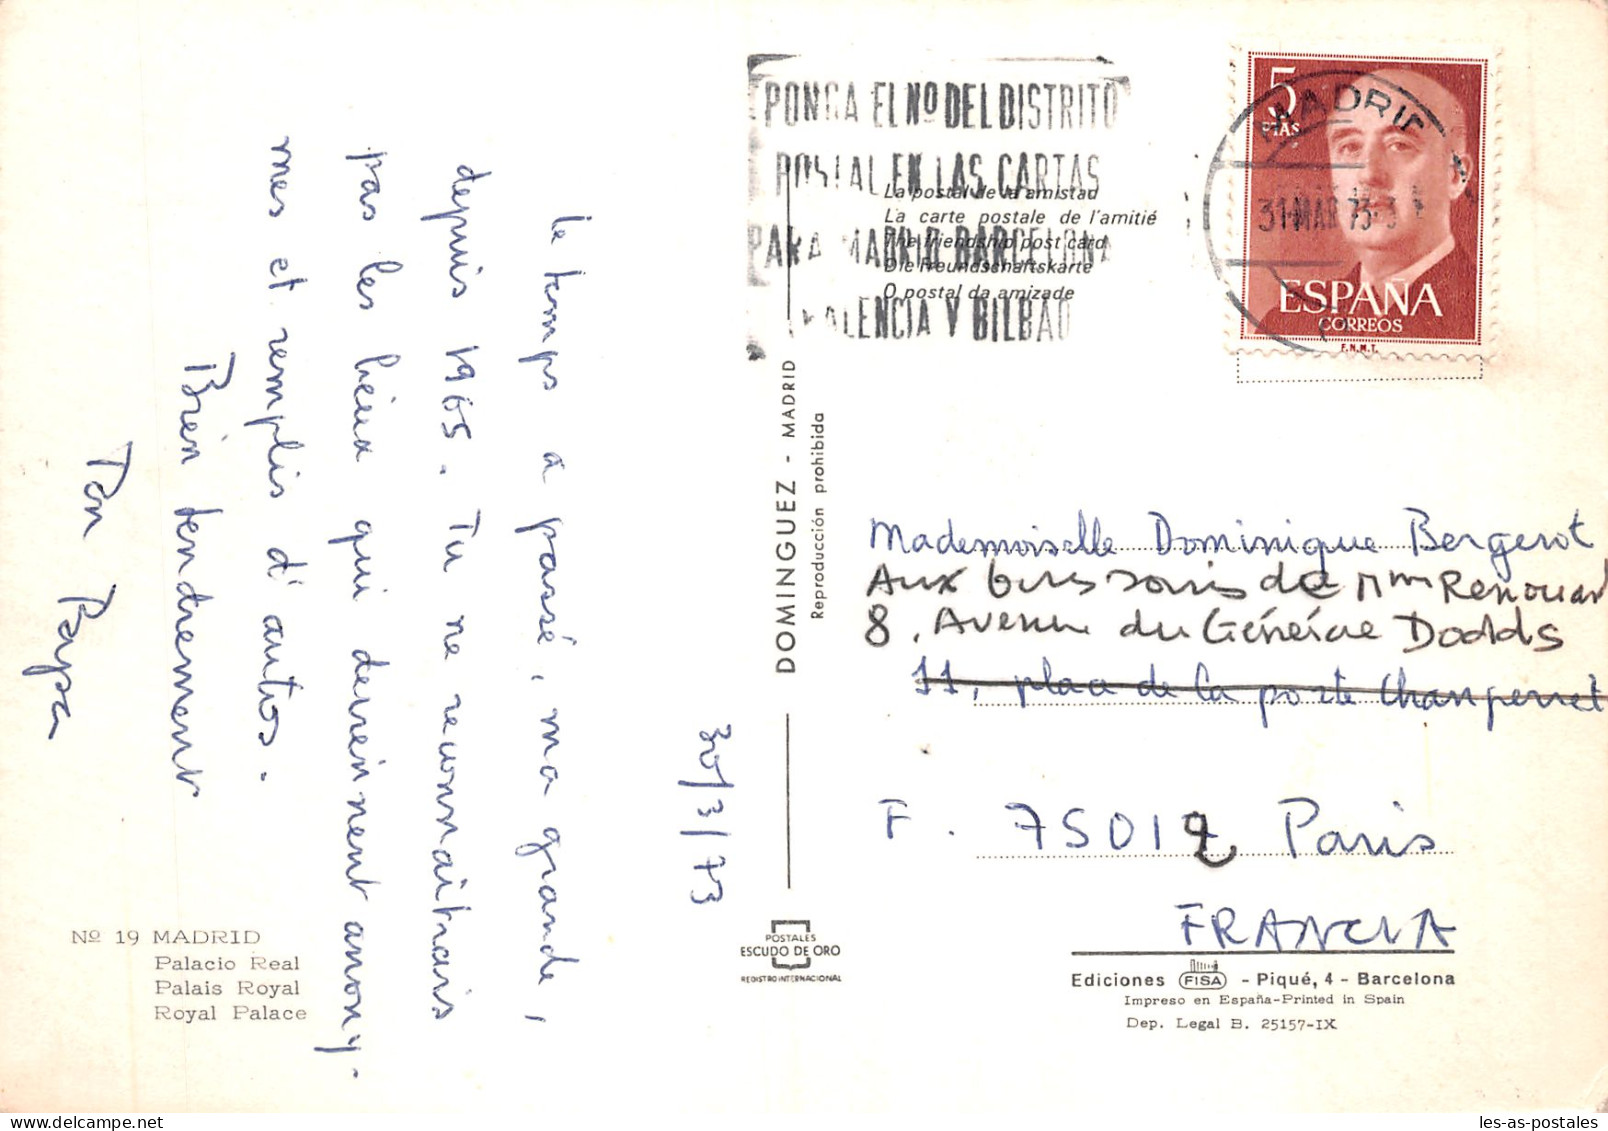 30/3/73
Le temps a passé, ma grande,
depuis 1965. Tu ne reconnaîtrais
pas les lieux qui deviennent anony-
mes et remplis d'autos.
Bien tendrement
Ton Papa
Nº 19 MADRID
Palacio Real
Palais Royal
Royal Palace
DOMINGUEZ - MADRID
Reproducción prohibida
POSTALES
ESCUDO DE ORO
REGISTRO INTERNACIONAL
PONGA EL Nº DEL DISTRITO
POSTAL EN LAS CARTAS
PARA MADRID BARCELONA
VALENCIA Y BILBAO
La postal de la amistad
La carte postale de l'amitié
The friendship post card
Die Freundschaftskarte
O postal da amizade
5
PTAS
MADRID
31 MAR 73
ESPAÑA
CORREOS
F.N.M.T.
Mademoiselle Dominique Bergerot
Aux bons soins de Mme Renouar
8, Avenue du Général Dodds
11, place de la porte Champerret
F. 75012 Paris
FRANCIA
Ediciones FISA - Piqué, 4 - Barcelona
Impreso en España-Printed in Spain
Dep. Legal B. 25157-IX
les-as-postales